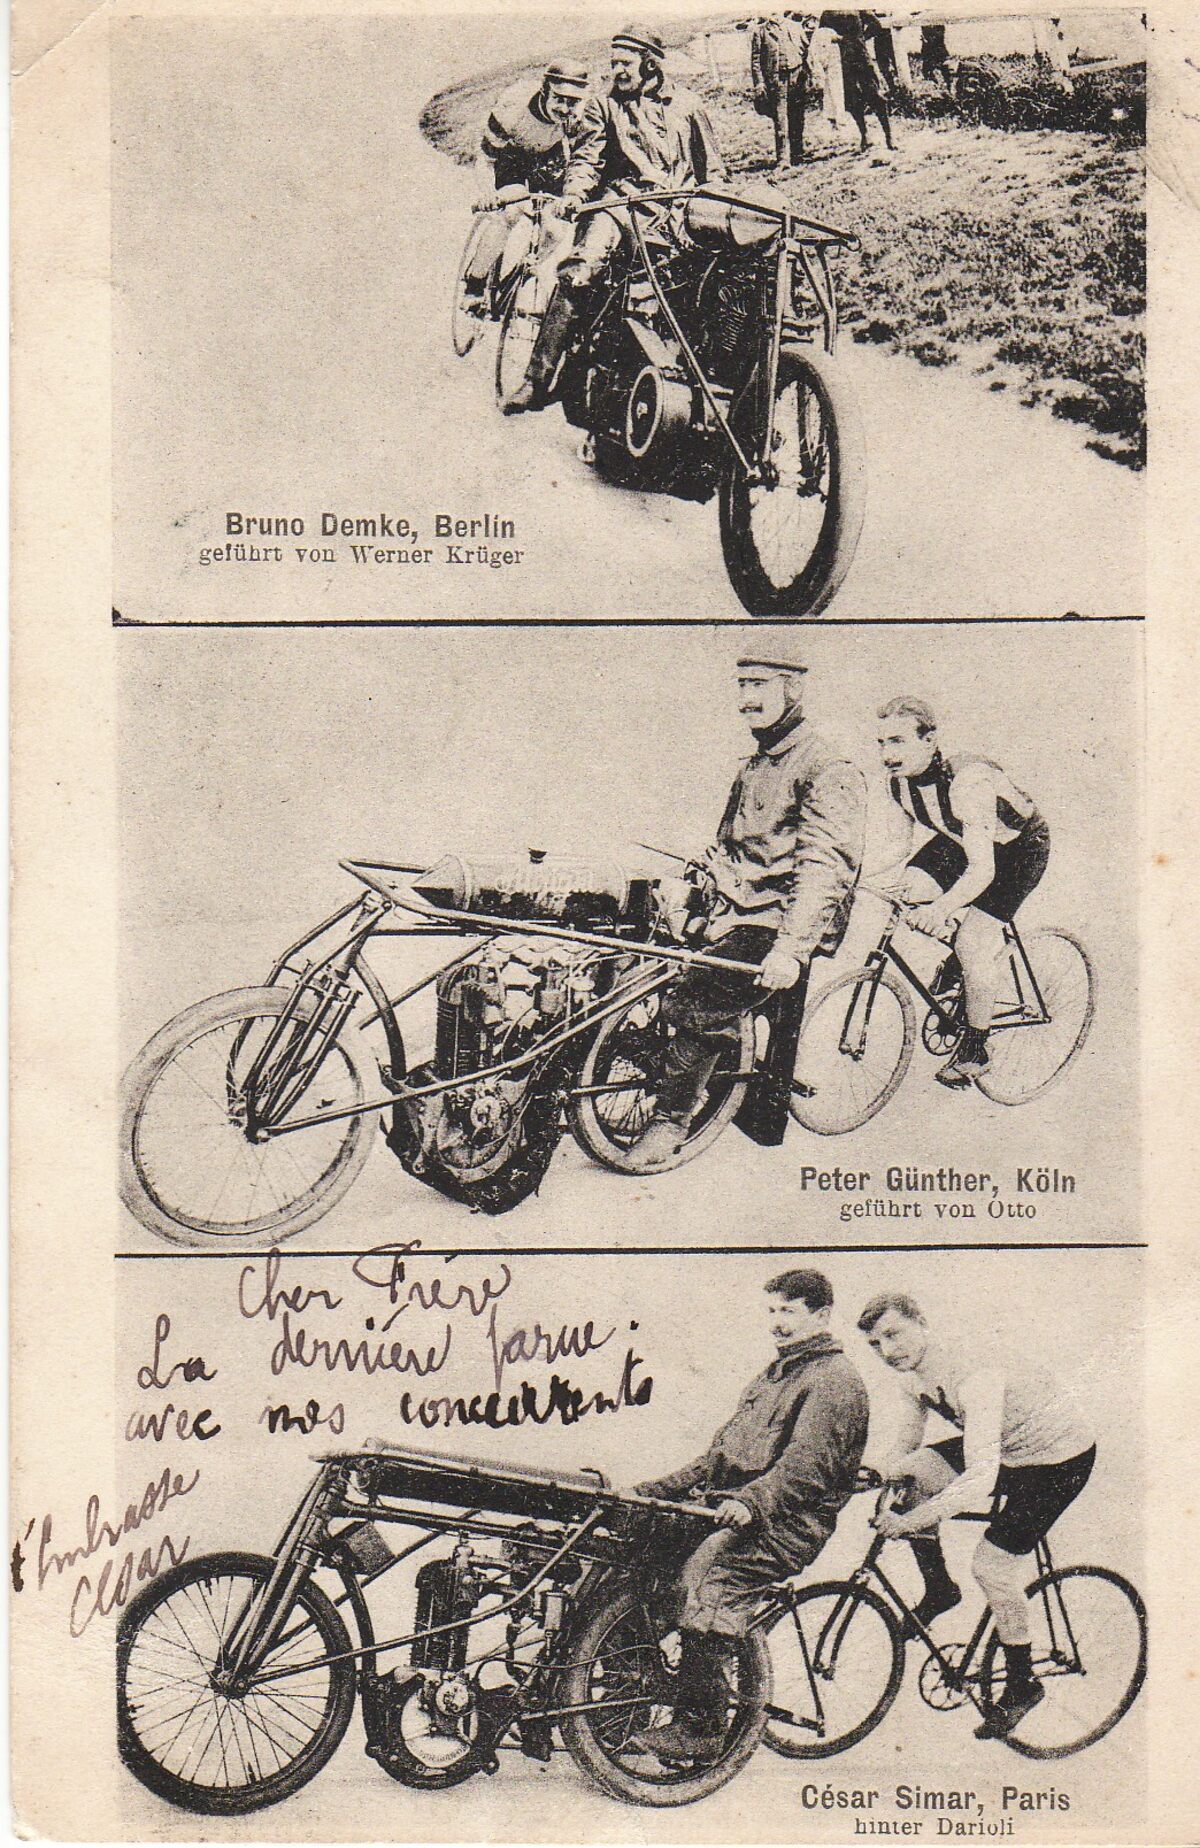 Bruno Demke, Berlin
geführt von Werner Krüger
Peter Günther, Köln
geführt von Otto
Cher Frère
La dernière parue.
avec nos concurrents
t'embrasse
César
César Simar, Paris
hinter Darioli